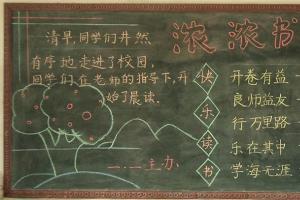 浓浓书
清早,同学们井然
有序地走进了校园,
同学们在老师的指导下,开
始了晨读.
快乐读书
开卷有益
良师益友
行万里路
乐在其中
学海无涯
一.一主办